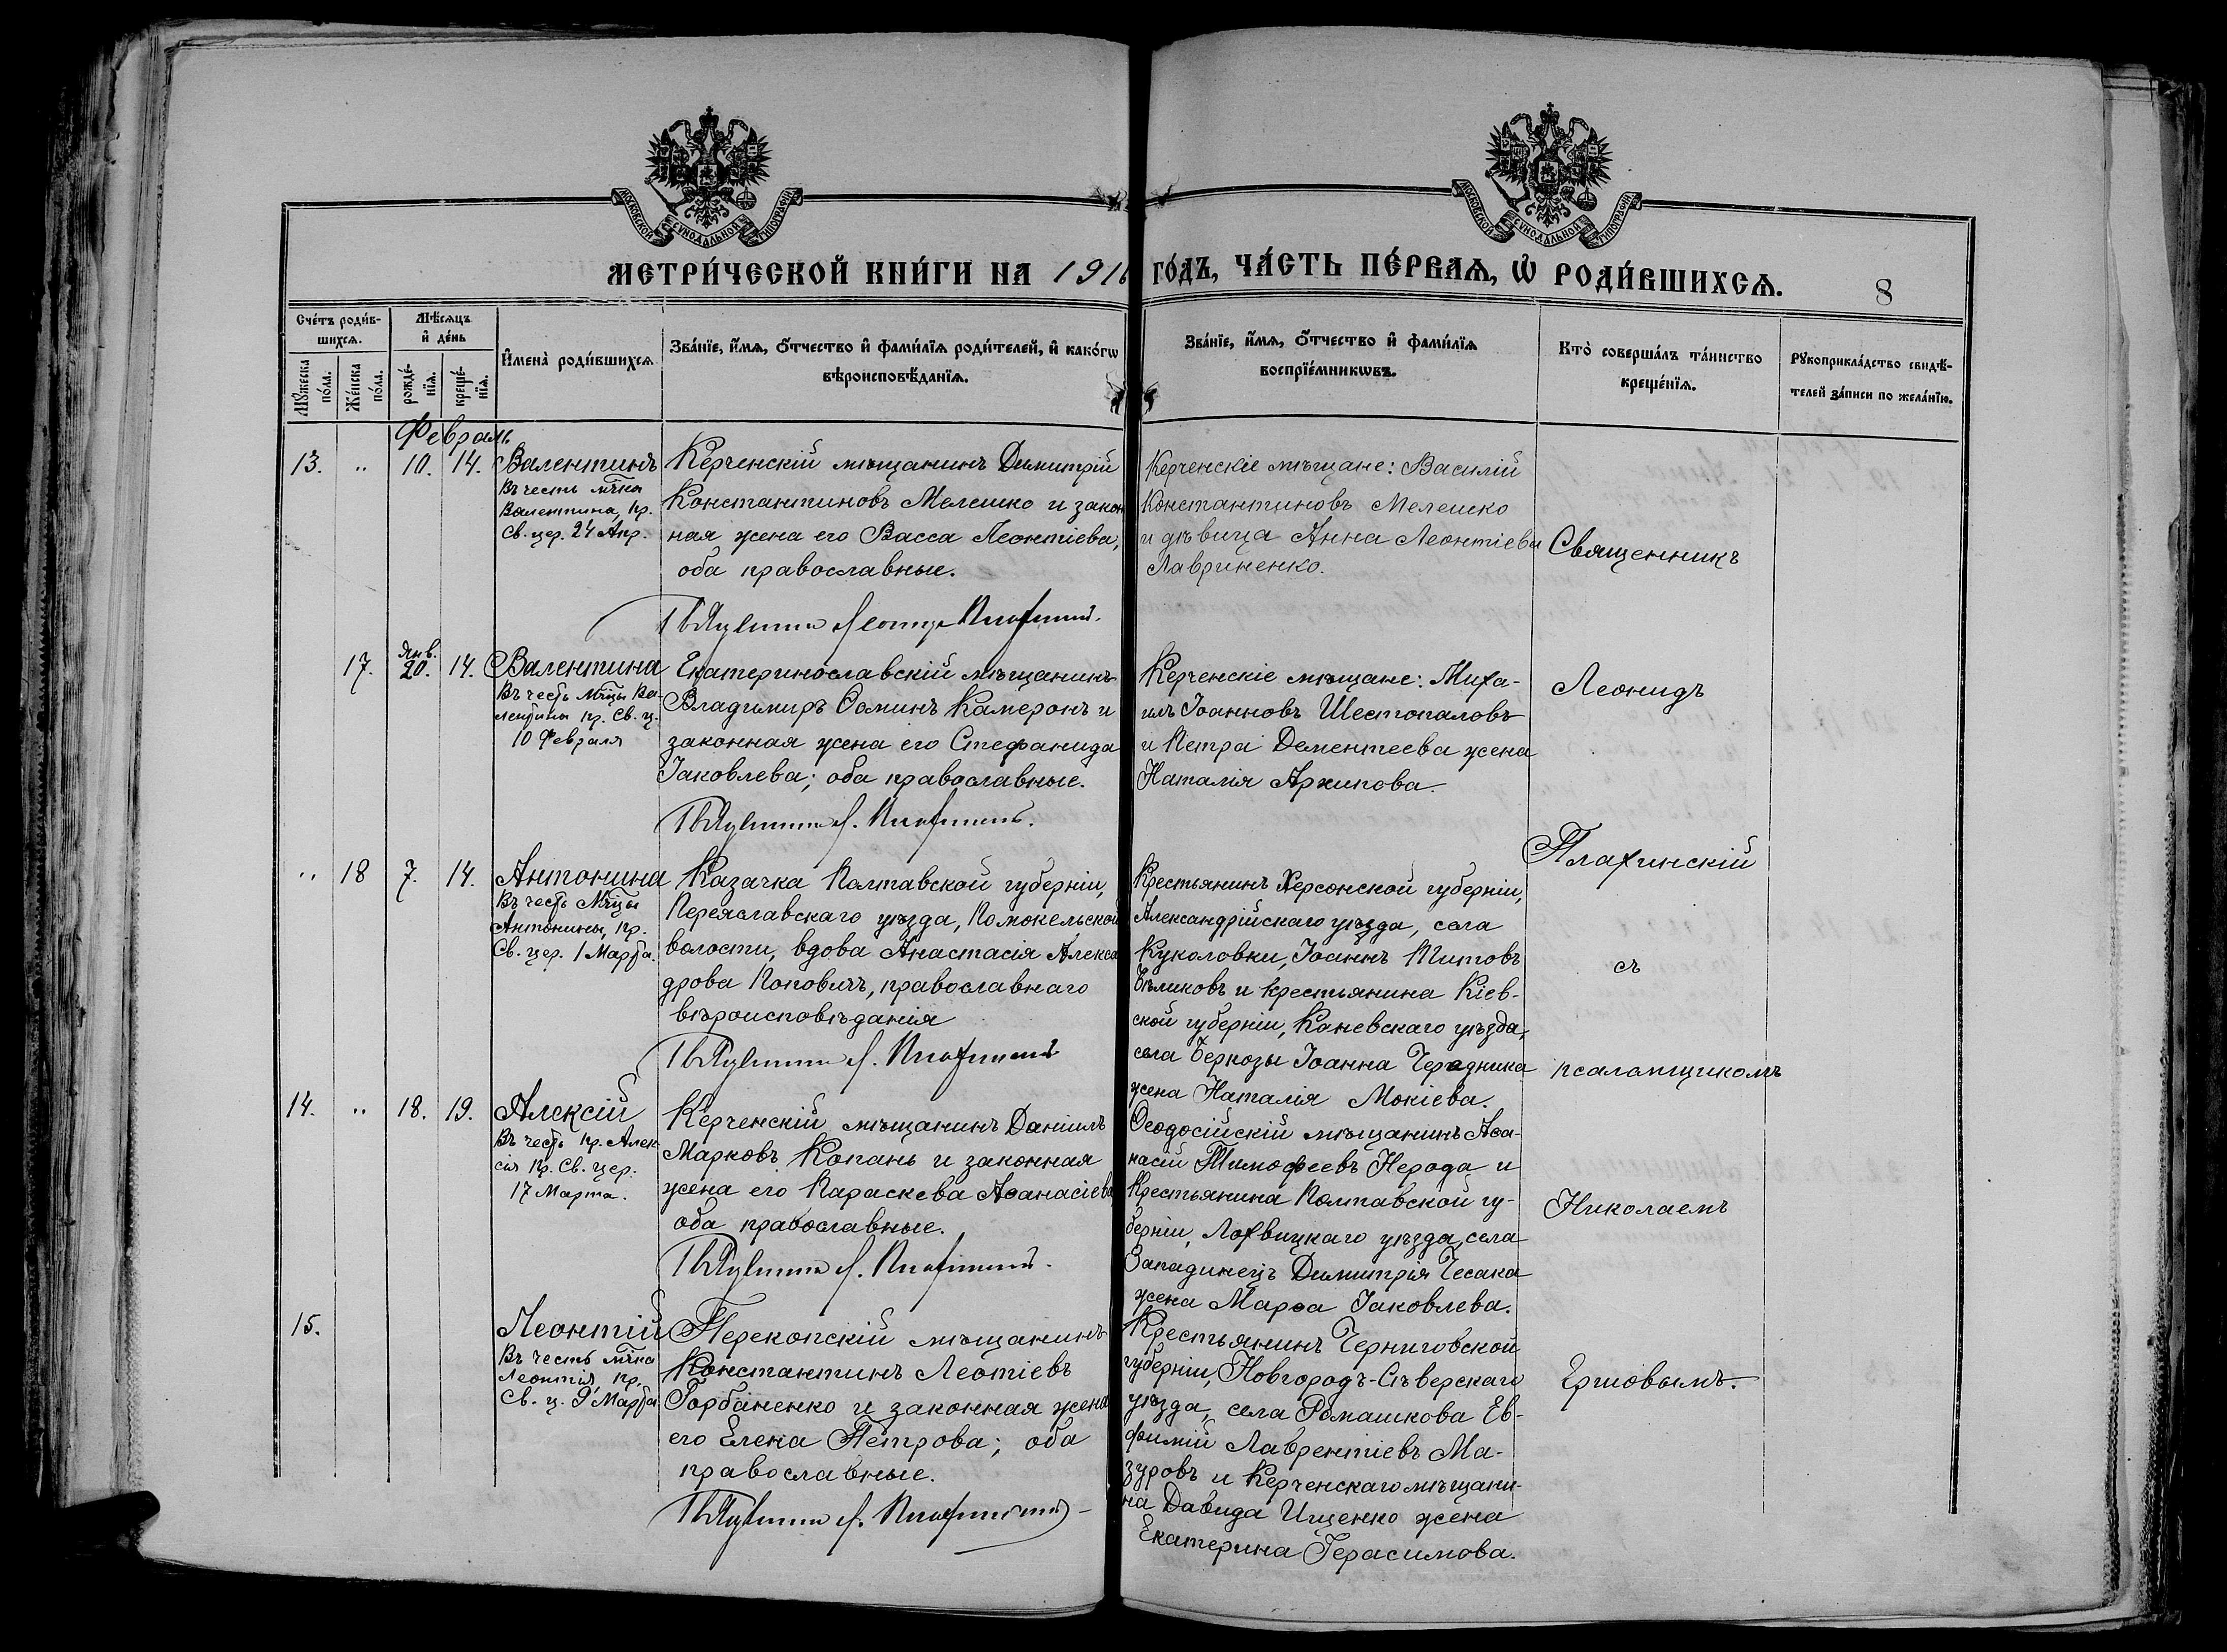 МОСКОВСКОЙ СѴНОДАЛЬНОЙ ТИПОГРАФІИ
МОСКОВСКОЙ СѴНОДАЛЬНОЙ ТИПОГРАФІИ
МЕТРИ́ЧЕСКОЙ КНИ́ГИ НА 1916 ГО́ДЪ, ЧА́СТЬ ПЕ́РВАѦ, Ѡ РОДИ́ВШИХСѦ.
8
Сче́тъ роди́в-
шихсѧ.
Мꙋжеска
по́ла.
Же́нска
по́ла.
Мѣ́сѧцъ
и҆ де́нь
рожде́-
нїѧ.
креще́-
нїѧ.
И҆мена̀ роди́вшихсѧ
Зва́нїе, и҆́мѧ, ѻ҆́тчество и҆ фами́лїѧ роди́телей, и҆ како́гѡ
вѣроисповѣ́данїѧ.
Зва́нїе, и҆́мѧ, ѻ҆́тчество и҆ фами́лїѧ
воспрїе́мникѡвъ.
Кто̀ соверша́лъ та́инство
креще́нїѧ.
Рꙋкоприкла́дство свидѣ́-
телей за́писи по жела́нїю.
Февраль
13. „ 10. 14. Валентинъ
Въ честь мчка
Валентина, пр.
Св. цер. 24 Апр.
Керченскій мѣщанинъ Димитрій
Константиновъ Мелешко и закон
ная жена его Васса Леонтіева,
оба православные.
Керченскіе мѣщане: Василій
Константиновъ Мелешко
и дѣвица Анна Леонтіева
Лавриненко.
Священникъ
17. Янв. 20. 14. Валентина
Въ честь Мчцы Ва-
лентины пр. Св. ц.
10 Февраля
Екатеринославскій мѣщанинъ
Владимиръ Ѳоминъ Камеронъ и
законная жена его Стефанида
Іаковлева; оба православные.
Керченскіе мѣщане: Миха-
илъ Іоанновъ Шестопаловъ
и Петра Дементеева жена
Наталія Архипова.
Леонидъ
„ 18 7. 14. Антонина
Въ честь Мчцы
Антонины, пр.
Св. цер. 1 Марта.
Казачка Полтавской губерніи,
Переяславскаго уѣзда, Помокельской
волости, вдова Анастасія Алекса
дрова Поповичъ, православнаго
вѣроисповѣданія
Крестьянинъ Херсонской губерніи,
Александрійскаго уѣзда, села
Куколовки, Іоаннъ Титовъ
Бѣликовъ и крестьянина Кіев-
ской губерніи, Каневскаго уѣзда,
села Беркозы Іоанна Чередника
жена Наталія Мокіева.
Плахинскій
съ
псаломщикомъ
14. „ 18. 19. Алексій
Въ честь пр. Алек-
сія пр. Св. цер.
17 Марта.
Керченскій мѣщанинъ Даніилъ
Марковъ Копань и законная
жена его Параскева Аѳанасіева
оба православные.
Ѳеодосійскій мѣщанинъ Аѳа-
насій Тимофеевъ Нерода и
Крестьянина Полтавской гу-
берніи, Лохвицкаго уѣзда, села
Западинецъ Димитрія Чесака
жена Марѳа Іаковлева.
Николаемъ
15. Леонтій
Въ честь мчка
Леонтія, пр.
Св. ц. 9 Марта
Перекопскій мѣщанинъ
Константинъ Леотіевъ
Горбаненко и законная жена
его Елена Петрова; оба
православные.
Крестьянинъ Черниговской
губерніи, Новгородъ-Сѣверскаго
уѣзда, села Ромашкова Ев-
фимій Лаврентіевъ Ма-
зуровъ и Керченскаго мѣщани-
на Давида Ищенко жена
Екатерина Герасимова.
Ершовымъ.